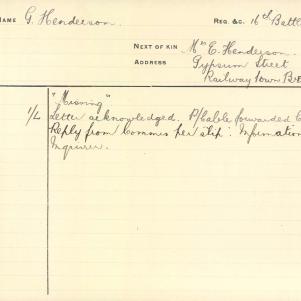 NAME G. Henderson REG. &C. 16th Battl
NEXT OF KIN Mrs E. Henderson.
ADDRESS Gypsum Street
Railway Town
"Missing"
1/L Letter acknowledged. P/Cable forwarded
Reply from Commrs per slip: Information
Inquirer.